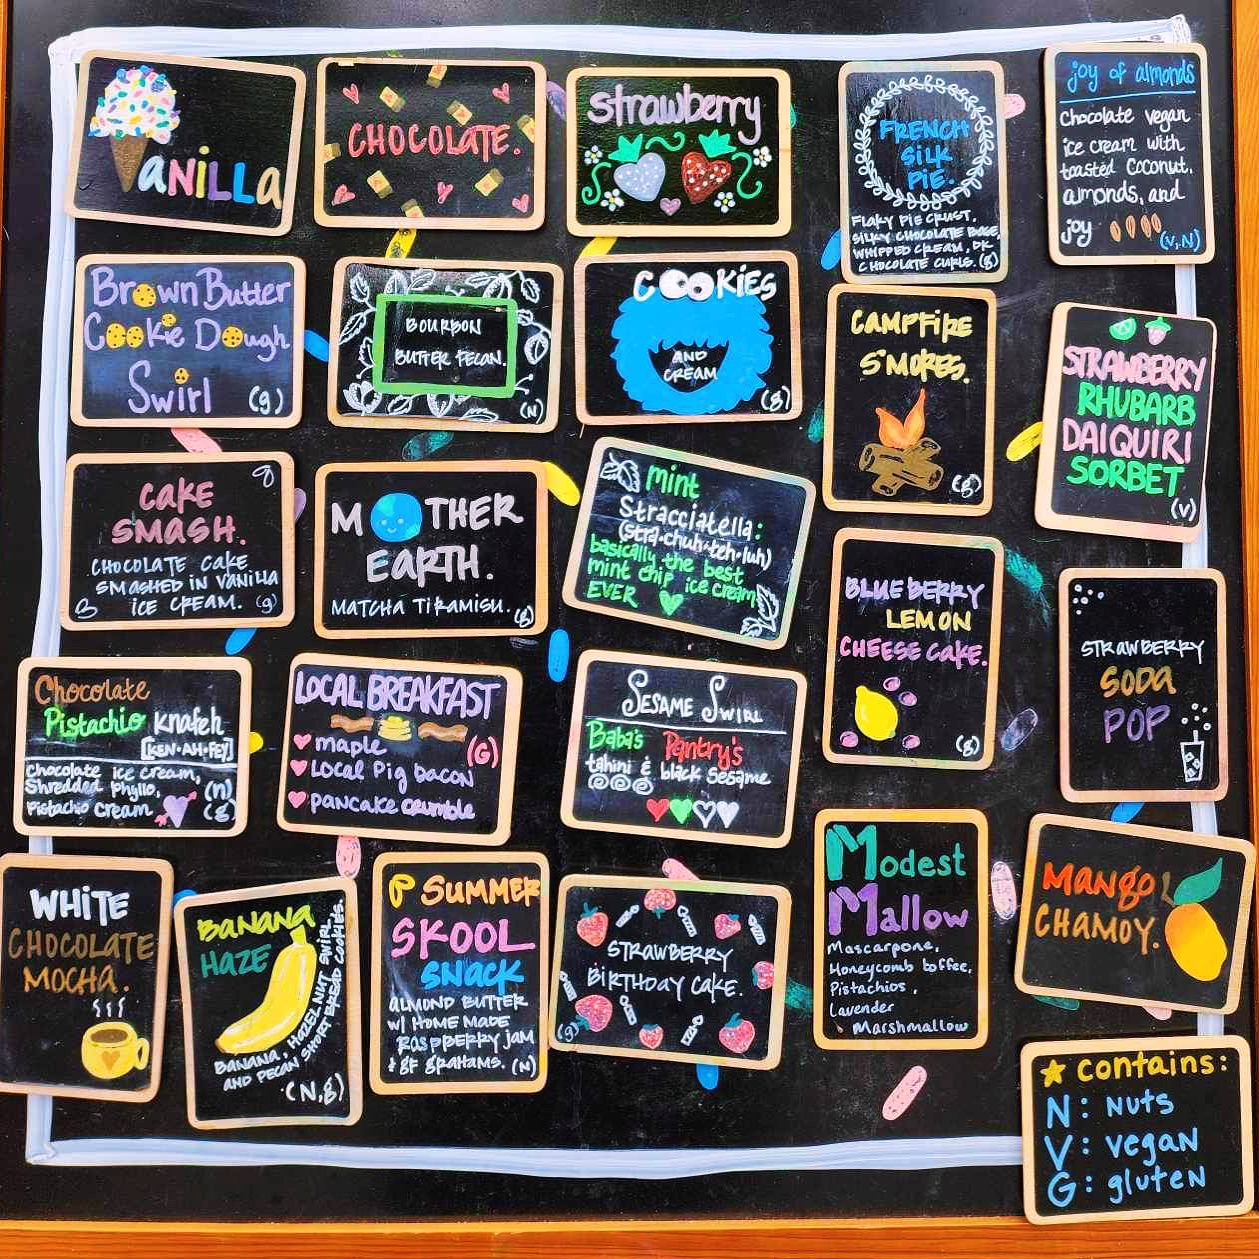 VANILLA
CHOCOLATE.
strawberry
FRENCH
SILK
PIE.
FLAKY PIE CRUST,
SILKY CHOCOLATE BASE,
WHIPPED CREAM, DK
CHOCOLATE CURLS. (g)
joy of almonds
Chocolate vegan
ice cream with
toasted Coconut,
almonds, and
joy (V,N)
Brown Butter
Cookie Dough
Swirl (g)
BOURBON
BUTTER PECAN.
(N)
COOKIES
AND
CREAM
(g)
CAMPFIRE
S'MORES.
(g)
STRAWBERRY
RHUBARB
DAIQUIRI
SORBET
(V)
CAKE
SMASH.
CHOCOLATE CAKE
SMASHED IN VANILLA
ICE CREAM. (g)
MOTHER
EARTH.
MATCHA TIRAMISU. (g)
mint
Stracciatella:
(stra·chuh·teh·luh)
basically the best
mint chip ice cream
EVER
BLUEBERRY
LEMON
CHEESE CAKE.
(g)
STRAWBERRY
SODA
POP
Chocolate
Pistachio Knafeh
[KEN·AH·FEY]
Chocolate ice cream,
Shredded phyllo, (n)
Pistachio cream (g)
LOCAL BREAKFAST
maple (G)
LOCAL Pig bacon
pancake crumble
SESAME SWIRL
Baba's Pantry's
tahini & black sesame
WHITE
CHOCOLATE
MOCHA.
BANANA
HAZE
BANANA, HAZELNUT SWIRL,
AND PECAN SHORTBREAD COOKIES.
(N,g)
SUMMER
SKOOL
SNACK
ALMOND BUTTER
W/ HOME MADE
RASPBERRY JAM
& GF GRAHAMS. (N)
STRAWBERRY
BIRTHDAY CAKE.
(g)
Modest
Mallow
Mascarpone,
Honeycomb toffee,
Pistachios,
Lavender
Marshmallow
MANGO
CHAMOY.
contains:
N: NUTS
V: vegan
G: gluten